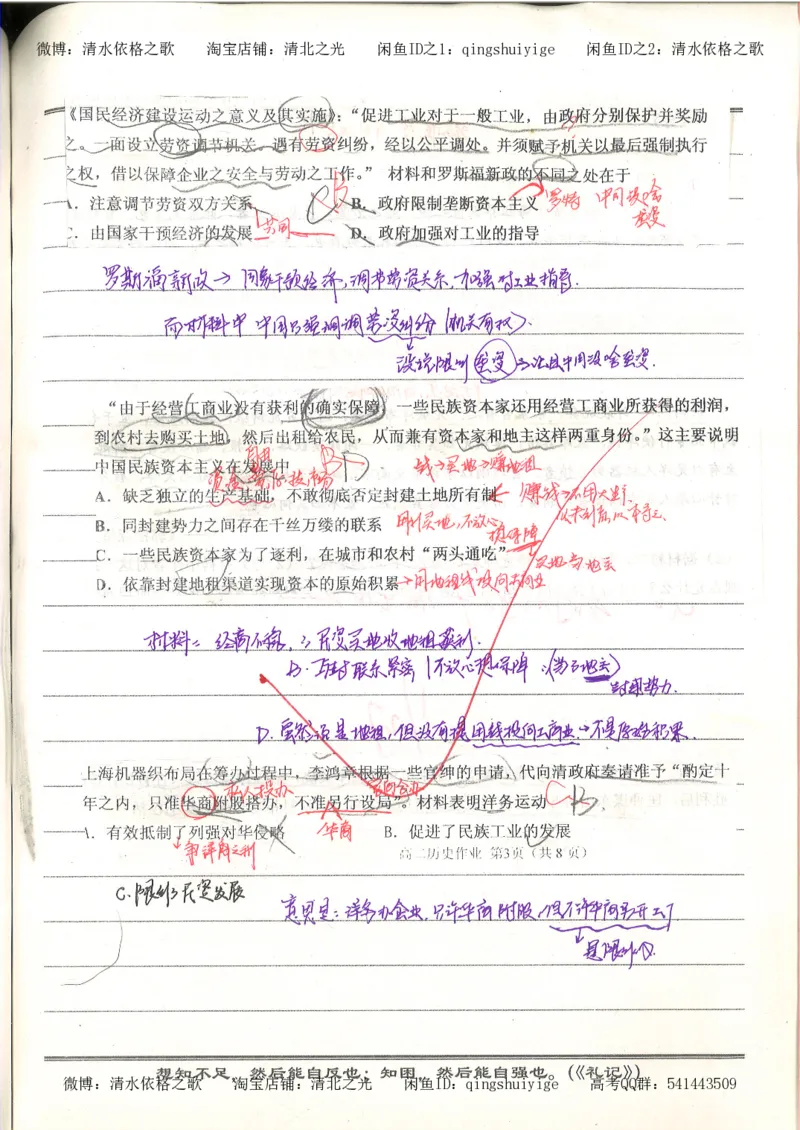 微博：清水依格之歌 淘宝店铺：清北之光 闲鱼ID之1：qingshuiyige 闲鱼ID之2：清水依格之歌
《国民经济建设运动之意义及其实施》：“促进工业对于一般工业，由政府分别保护并奖励
之。一面设立劳资调节机关。遇有劳资纠纷，经以公平调处。并须赋予机关以最后强制执行
之权，借以保障企业之安全与劳动之工作。” 材料和罗斯福新政的不同之处在于
A．注意调节劳资双方关系 B．政府限制垄断资本主义
罗特 中国没啥
C．由国家干预经济的发展 共同 D．政府加强对工业的指导
罗斯福新政→国家干预经济，调节劳资关系，加强对工业指导．
而材料中 中国只强调调劳资纠纷（机关有权）．
没说限制垄断 ∵法且中国没啥垄断．
“由于经营工商业没有获利的确实保障，一些民族资本家还用经营工商业所获得的利润，
到农村去购买土地，然后出租给农民，从而兼有资本家和地主这样两重身份。”这主要说明
中国民族资本主义在发展中
钱→买地→赚地租
A．缺乏独立的生产基础，不敢彻底否定封建土地所有制
B．同封建势力之间存在千丝万缕的联系
C．一些民族资本家为了逐利，在城市和农村“两头通吃”
买地当地主
D．依靠封建地租渠道实现资本的原始积累→用地租钱投向工商业
材料＝经商不保，∴再买地收地租获利．
B．与封联系紧密（不放心没保障∴当了地主）
封建势力．
D．虽然说是地租，但没有提用钱投向工商业→不是原始积累．
上海机器织布局在筹办过程中，李鸿章根据一些官绅的申请，代向清政府奏请准予“酌定十
年之内，只准华商附股搭办，不准另行设局”。材料表明洋务运动
C B．
A．有效抵制了列强对华侵略 华商 B．促进了民族工业的发展
高二历史作业 第3页（共 8 页）
C．限制了民资发展
意思是：洋务办企业，只许华商附股，但不许华商另开工厂
是限制．
想知不足，然后能自反也；知困，然后能自强也。（《礼记》）
微博：清水依格之歌 淘宝店铺：清北之光 闲鱼ID：qingshuiyige 高考QQ群：541443509